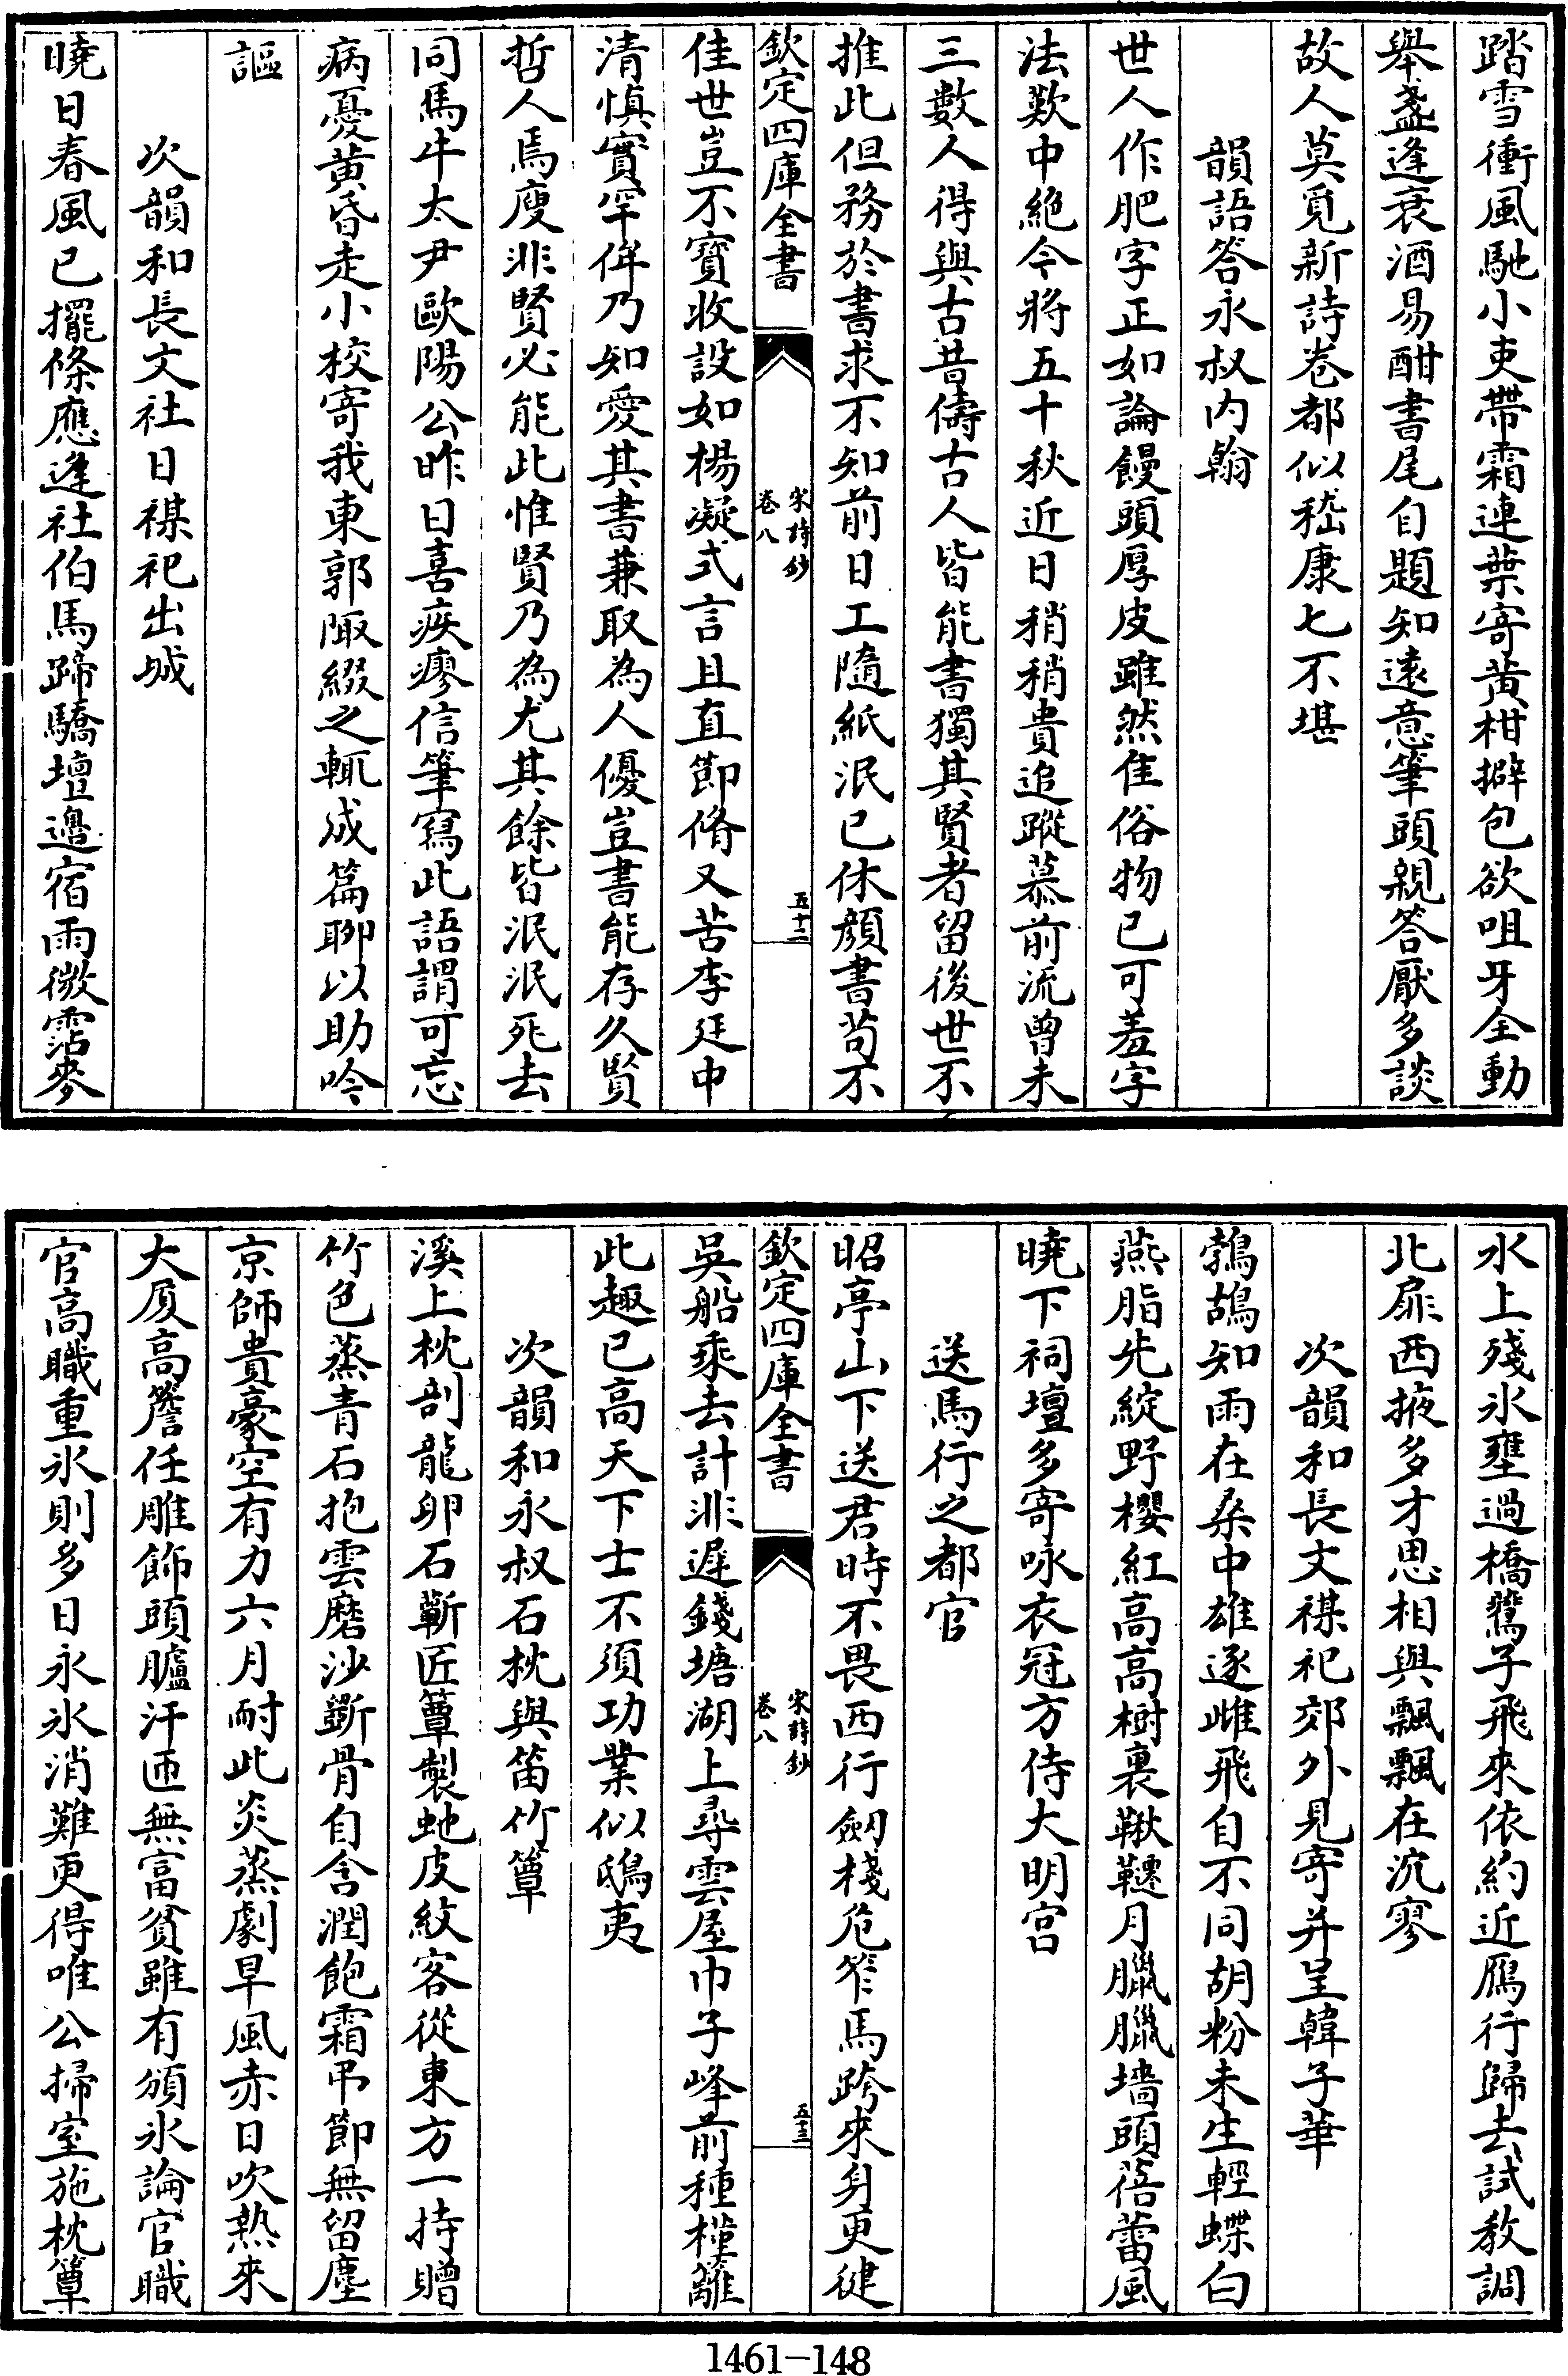 踏雪衝風馳小吏帶霜連葉寄黄柑擗包欲咀牙全動
舉盞逢衰酒易酣書尾自題知遠意筆頭親答厭多談
故人莫覓新詩卷都似嵇康七不堪
韻語答永叔内翰
世人作肥字正如論饅頭厚皮雖然佳俗物已可羞字
法歎中絶今將五十秋近日稍稍貴追蹤慕前流曾未
三數人得與古昔儔古人皆能書獨其賢者留後世不
推此但務於書求不知前日工隨紙泯已休顔書苟不
欽定四庫全書
宋詩鈔
卷八
五十二
佳世豈不寳收設如楊凝式言且直節脩又苦李廷中
清慎實罕侔乃知愛其書兼取為人優豈書能存久賢
哲人焉廋非賢必能此惟賢乃為尤其餘皆泯泯死去
同馬牛太尹歐陽公昨日喜疾瘳信筆寫此語謂可忘
病憂黄昏走小校寄我東郭陬綴之輒成篇聊以助吟
謳
次韻和長文社日禖祀出城
曉日春風已擺條應逢社伯馬蹄驕壇邊宿雨微霑麥
水上殘氷壅過橋鶩子飛來依約近鴈行歸去試教調
北扉西掖多才思相與飄飄在泬寥
次韻和長文禖祀郊外見寄并呈韓子華
鵓鴣知雨在桑中雄逐雌飛自不同胡粉未生輕蝶白
燕脂先綻野櫻紅高高樹裏鞦韆月臘臘墻頭蓓蕾風
曉下祠壇多寄咏衣冠方侍大明宫
送馬行之都官
昭亭山下送君時不畏西行劒棧危笮馬跨來身更健
欽定四庫全書
宋詩鈔
卷八
五十三
吳船乘去計非遲錢塘湖上尋雲屋巾子峰前種槿籬
此趣已高天下士不須功業似鴟夷
次韻和永叔石枕與笛竹簟
溪上枕剖龍卵石蘄匠簟製虵皮紋客從東方一持贈
竹色蒸青石抱雲磨沙斲骨自含潤飽霜弔節無留塵
京師貴豪空有力六月耐此炎蒸劇旱風赤日吹熱來
大厦高簷任雕飾頭臚汗匝無富貧雖有頒氷論官職
官高職重氷則多日永氷消難更得唯公掃室施枕簟
1461-148